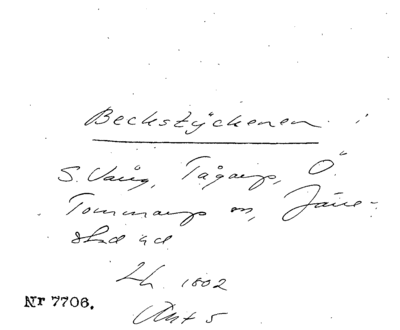 Beckstyckenen
S. Vång, Tågarp, Ö.
Tommarp sn, Järre-
stad hd
Lh. 1802
Akt 5
Nr 7706.